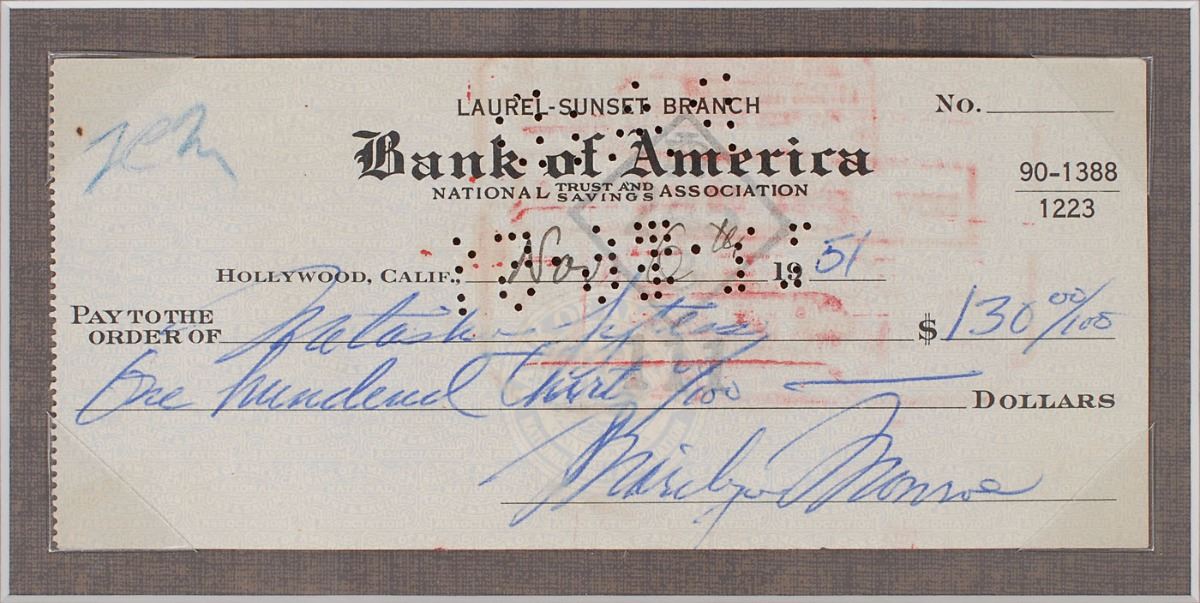 LAUREL-SUNSET BRANCH No.
Bank of America
NATIONAL TRUST AND SAVINGS ASSOCIATION
90-1388
1223
HOLLYWOOD, CALIF., Nov 6th 1951
PAY TO THE ORDER OF Natasha Lytess $130 00/100
One hundred Thirt /100 DOLLARS
Marilyn Monroe